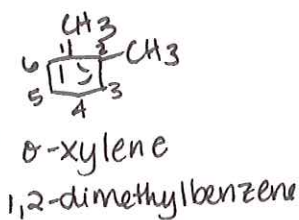 CH3
1 2 CH3
6
5 3
4
o-xylene
1,2-dimethylbenzene